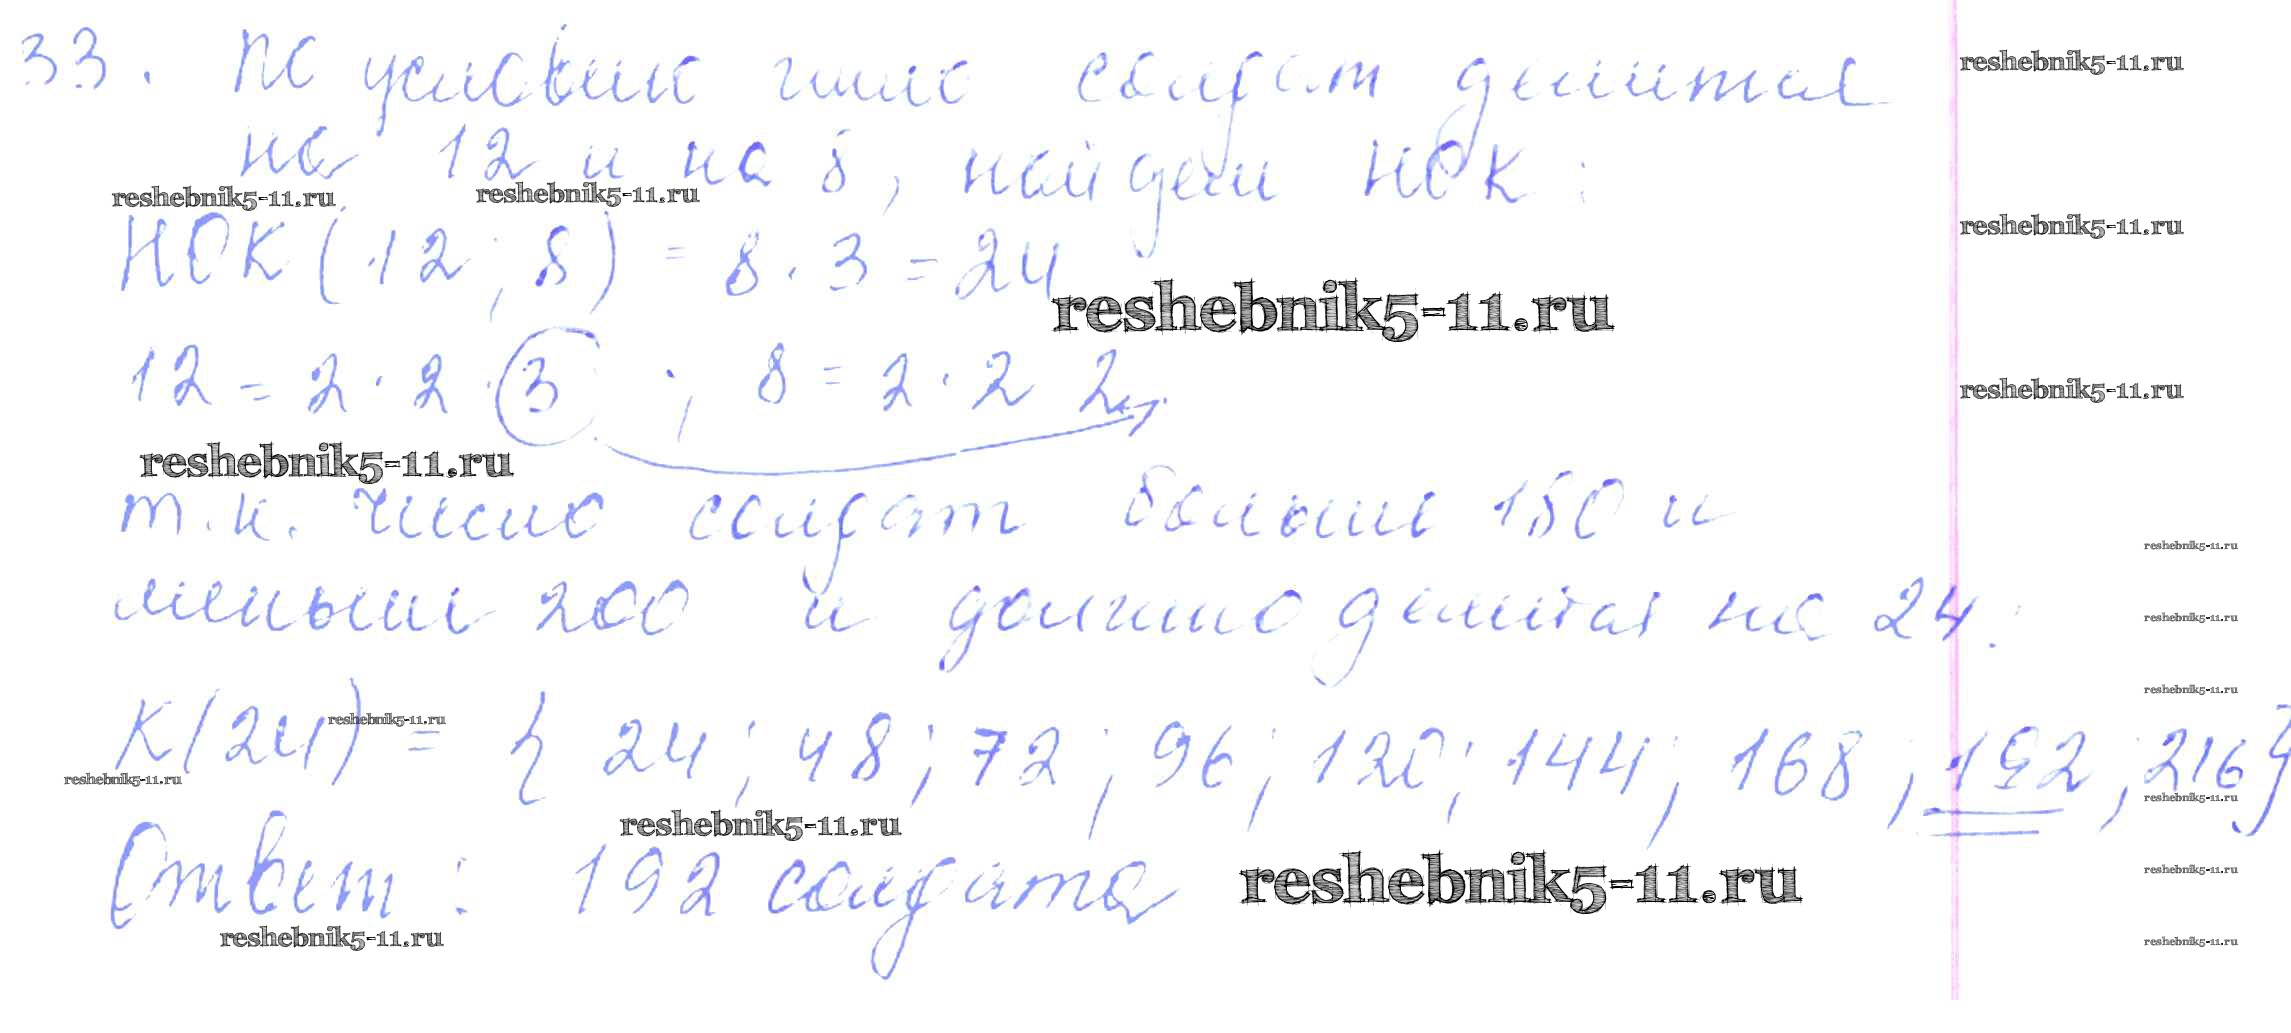 33. По условию число солдат делится reshebnik5-11.ru
на 12 и на 8, найдем НОК:
reshebnik5-11.ru reshebnik5-11.ru reshebnik5-11.ru
НОК (12; 8) = 8 · 3 = 24
reshebnik5-11.ru
12 = 2 · 2 · 3 ; 8 = 2 · 2 2 reshebnik5-11.ru
reshebnik5-11.ru
т.к. число солдат больше 150 и reshebnik5-11.ru
меньше 200 и должно делится на 24: reshebnik5-11.ru
reshebnik5-11.ru reshebnik5-11.ru
К(24) = { 24; 48; 72; 96; 120; 144; 168; 192; 216}
reshebnik5-11.ru reshebnik5-11.ru
reshebnik5-11.ru
Ответ: 192 солдата reshebnik5-11.ru reshebnik5-11.ru
reshebnik5-11.ru reshebnik5-11.ru